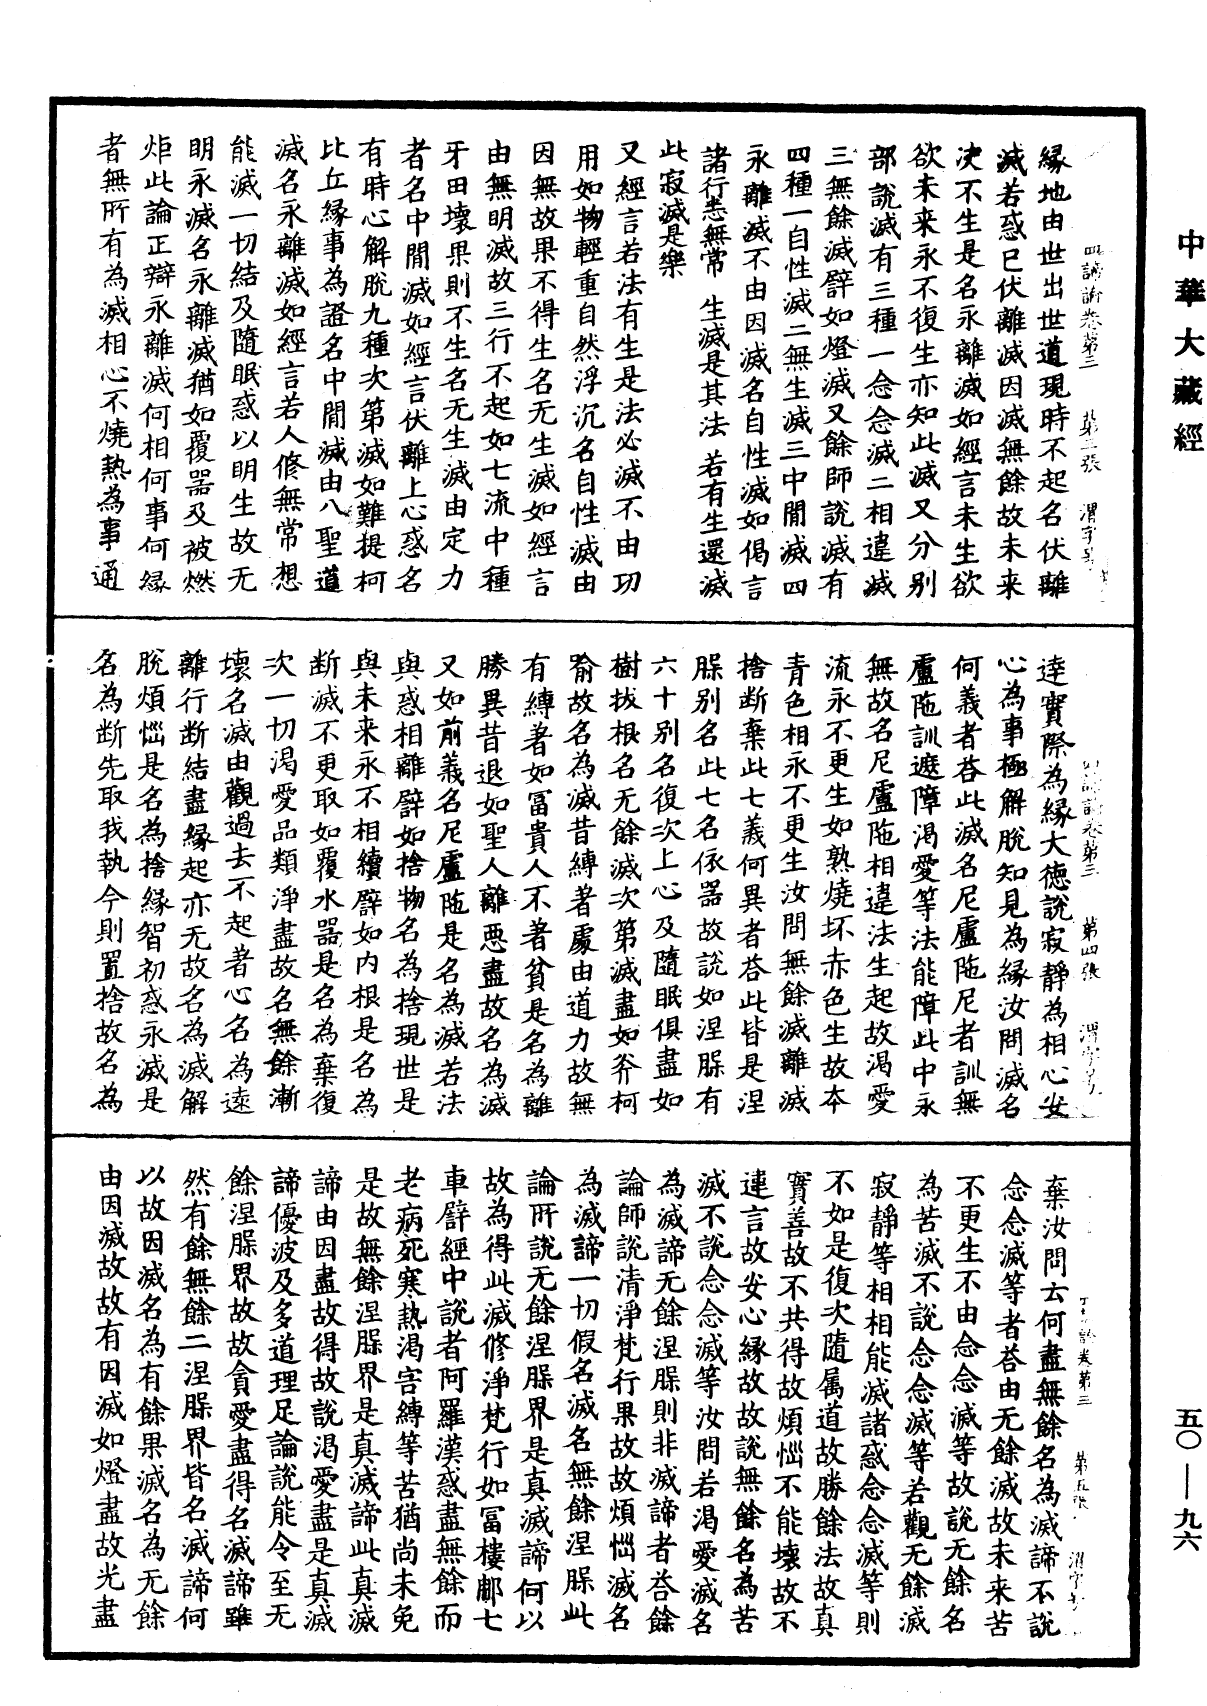 中華大藏經
四諦論卷第三 第三張 渭字号
緣地由世出世道現時不起名伏離
滅若惑已伏離滅因滅無餘故未來
決不生是名永離滅如經言未生欲
欲未來永不復生亦知此滅又分別
部說滅有三種一念念滅二相違滅
三無餘滅譬如燈滅又餘師說滅有
四種一自性滅二無生滅三中間滅四
永離滅不由因滅名自性滅如偈言
諸行悉無常 生滅是其法 若有生還滅
此寂滅是樂
又經言若法有生是法必滅不由功
用如物輕重自然浮沉名自性滅由
因無故果不得生名无生滅如經言
由無明滅故三行不起如七流中種
牙田壞果則不生名无生滅由定力
者名中間滅如經言伏離上心惑名
有時心解脫九種次第滅如難提柯
比丘緣事為證名中間滅由八聖道
滅名永離滅如經言若人修無常想
能滅一切結及隨眠惑以明生故无
明永滅名永離滅猶如覆器及被燃
炬此論正辯永離滅何相何事何緣
者無所有為滅相心不燒熱為事通
四諦論卷第三 第四張 渭字号
達實際為緣大德說寂靜為相心安
心為事極解脫知見為緣汝問滅名
何義者荅此滅名尼盧陁尼者訓無
盧陁訓遮障渴愛等法能障此中永
無故名尼盧陁相違法生起故渴愛
流永不更生如熟燒坏赤色生故本
青色相永不更生汝問無餘滅離滅
捨斷棄此七義何異者荅此皆是涅
膍別名此七名依器故說如涅膍有
六十別名復次上心及隨眠俱盡如
樹拔根名无餘滅次第滅盡如斧柯
喻故名為滅昔縛著處由道力故無
有縛著如冨貴人不著貧是名為離
勝異昔退如聖人離惡盡故名為滅
又如前義名尼盧陁是名為滅若法
與惑相離譬如捨物名為捨現世是
與未來永不相續譬如內根是名為
斷滅不更取如覆水器是名為棄復
次一切渴愛品類淨盡故名無餘漸
壞名滅由觀過去不起著心名為遠
離行斷結盡緣起亦无故名為滅解
脫煩惱是名為捨緣智初惑永滅是
名為斷先取我執今則置捨故名為
四諦論卷第三 第五張 渭字号
棄汝問云何盡無餘名為滅諦不說
念念滅等者荅由无餘滅故未來苦
不更生不由念念滅等故說无餘名
為苦滅不說念念滅等若觀无餘滅
寂靜等相相能滅諸惑念念滅等則
不如是復次隨属道故勝餘法故真
實善故不共得故煩惱不能壞故不
違言故安心緣故故說無餘名為苦
滅不說念念滅等汝問若渴愛滅名
為滅諦无餘涅膍則非滅諦者荅餘
論師說清淨梵行果故故煩惱滅名
為滅諦一切假名滅名無餘涅膍此
論所說无餘涅膍界是真滅諦何以
故為得此滅修淨梵行如冨樓那七
車譬經中說者阿羅漢惑盡無餘而
老病死寒熱渴害縛等苦猶尚未免
是故無餘涅膍界是真滅諦此真滅
諦由因盡故得故說渴愛盡是真滅
諦優波及多道理足論說能令至无
餘涅膍界故故貪愛盡得名滅諦雖
然有餘無餘二涅膍界皆名滅諦何
以故因滅名為有餘果滅名為无餘
由因滅故故有因滅如燈盡故光盡
五〇—九六